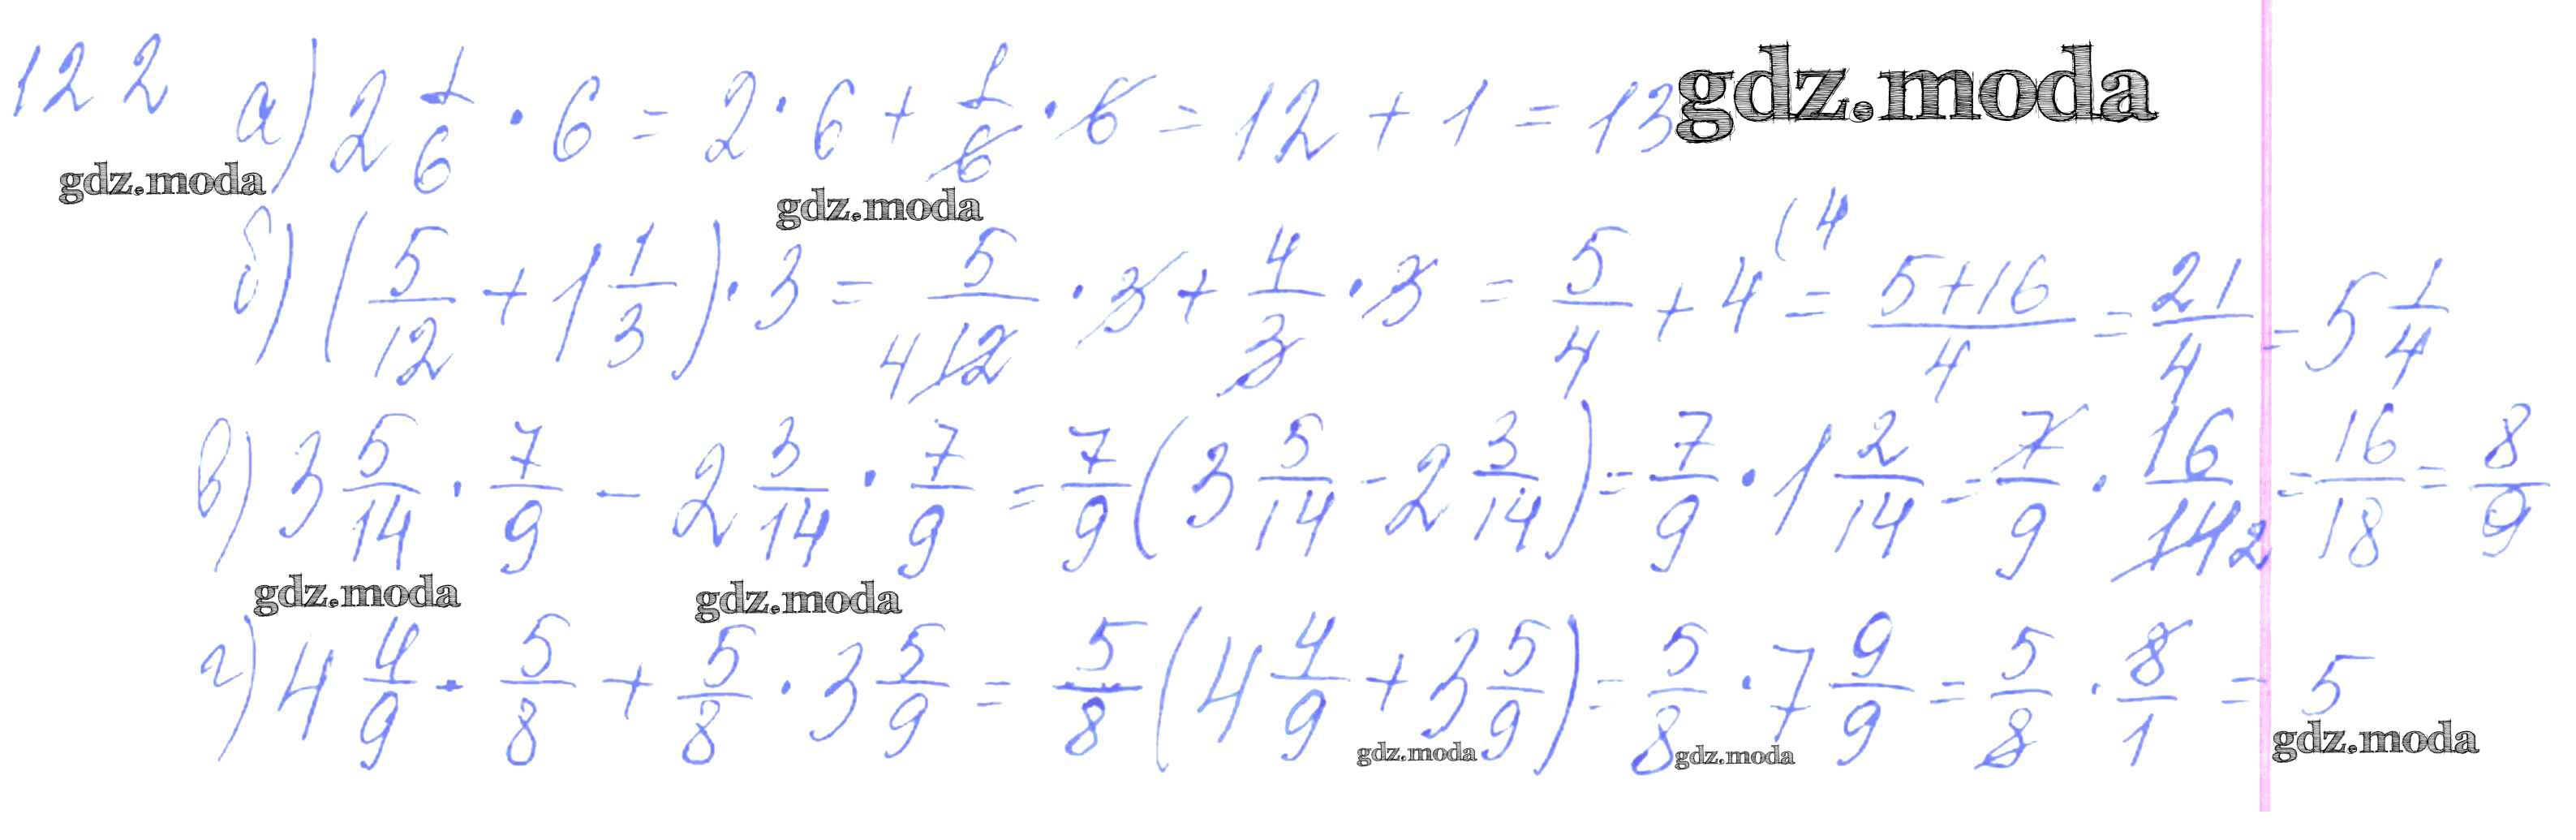 122 а) 2 1/6 · 6 = 2 · 6 + 1/6 · 6 = 12 + 1 = 13 gdz.moda
gdz.moda gdz.moda
б) (5/12 + 1 1/3) · 3 = 5/4 12 · 3 + 4/3 · 3 = 5/4 + 4 (4 = 5+16/4 = 21/4 = 5 1/4
в) 3 5/14 · 7/9 - 2 3/14 · 7/9 = 7/9 (3 5/14 - 2 3/14) = 7/9 · 1 2/14 = 7/9 · 16/14 2 = 16/18 = 8/9
gdz.moda gdz.moda
г) 4 4/9 · 5/8 + 5/8 · 3 5/9 = 5/8 (4 4/9 + 3 5/9) = 5/8 · 7 9/9 = 5/8 · 8/1 = 5
gdz.moda gdz.moda gdz.moda